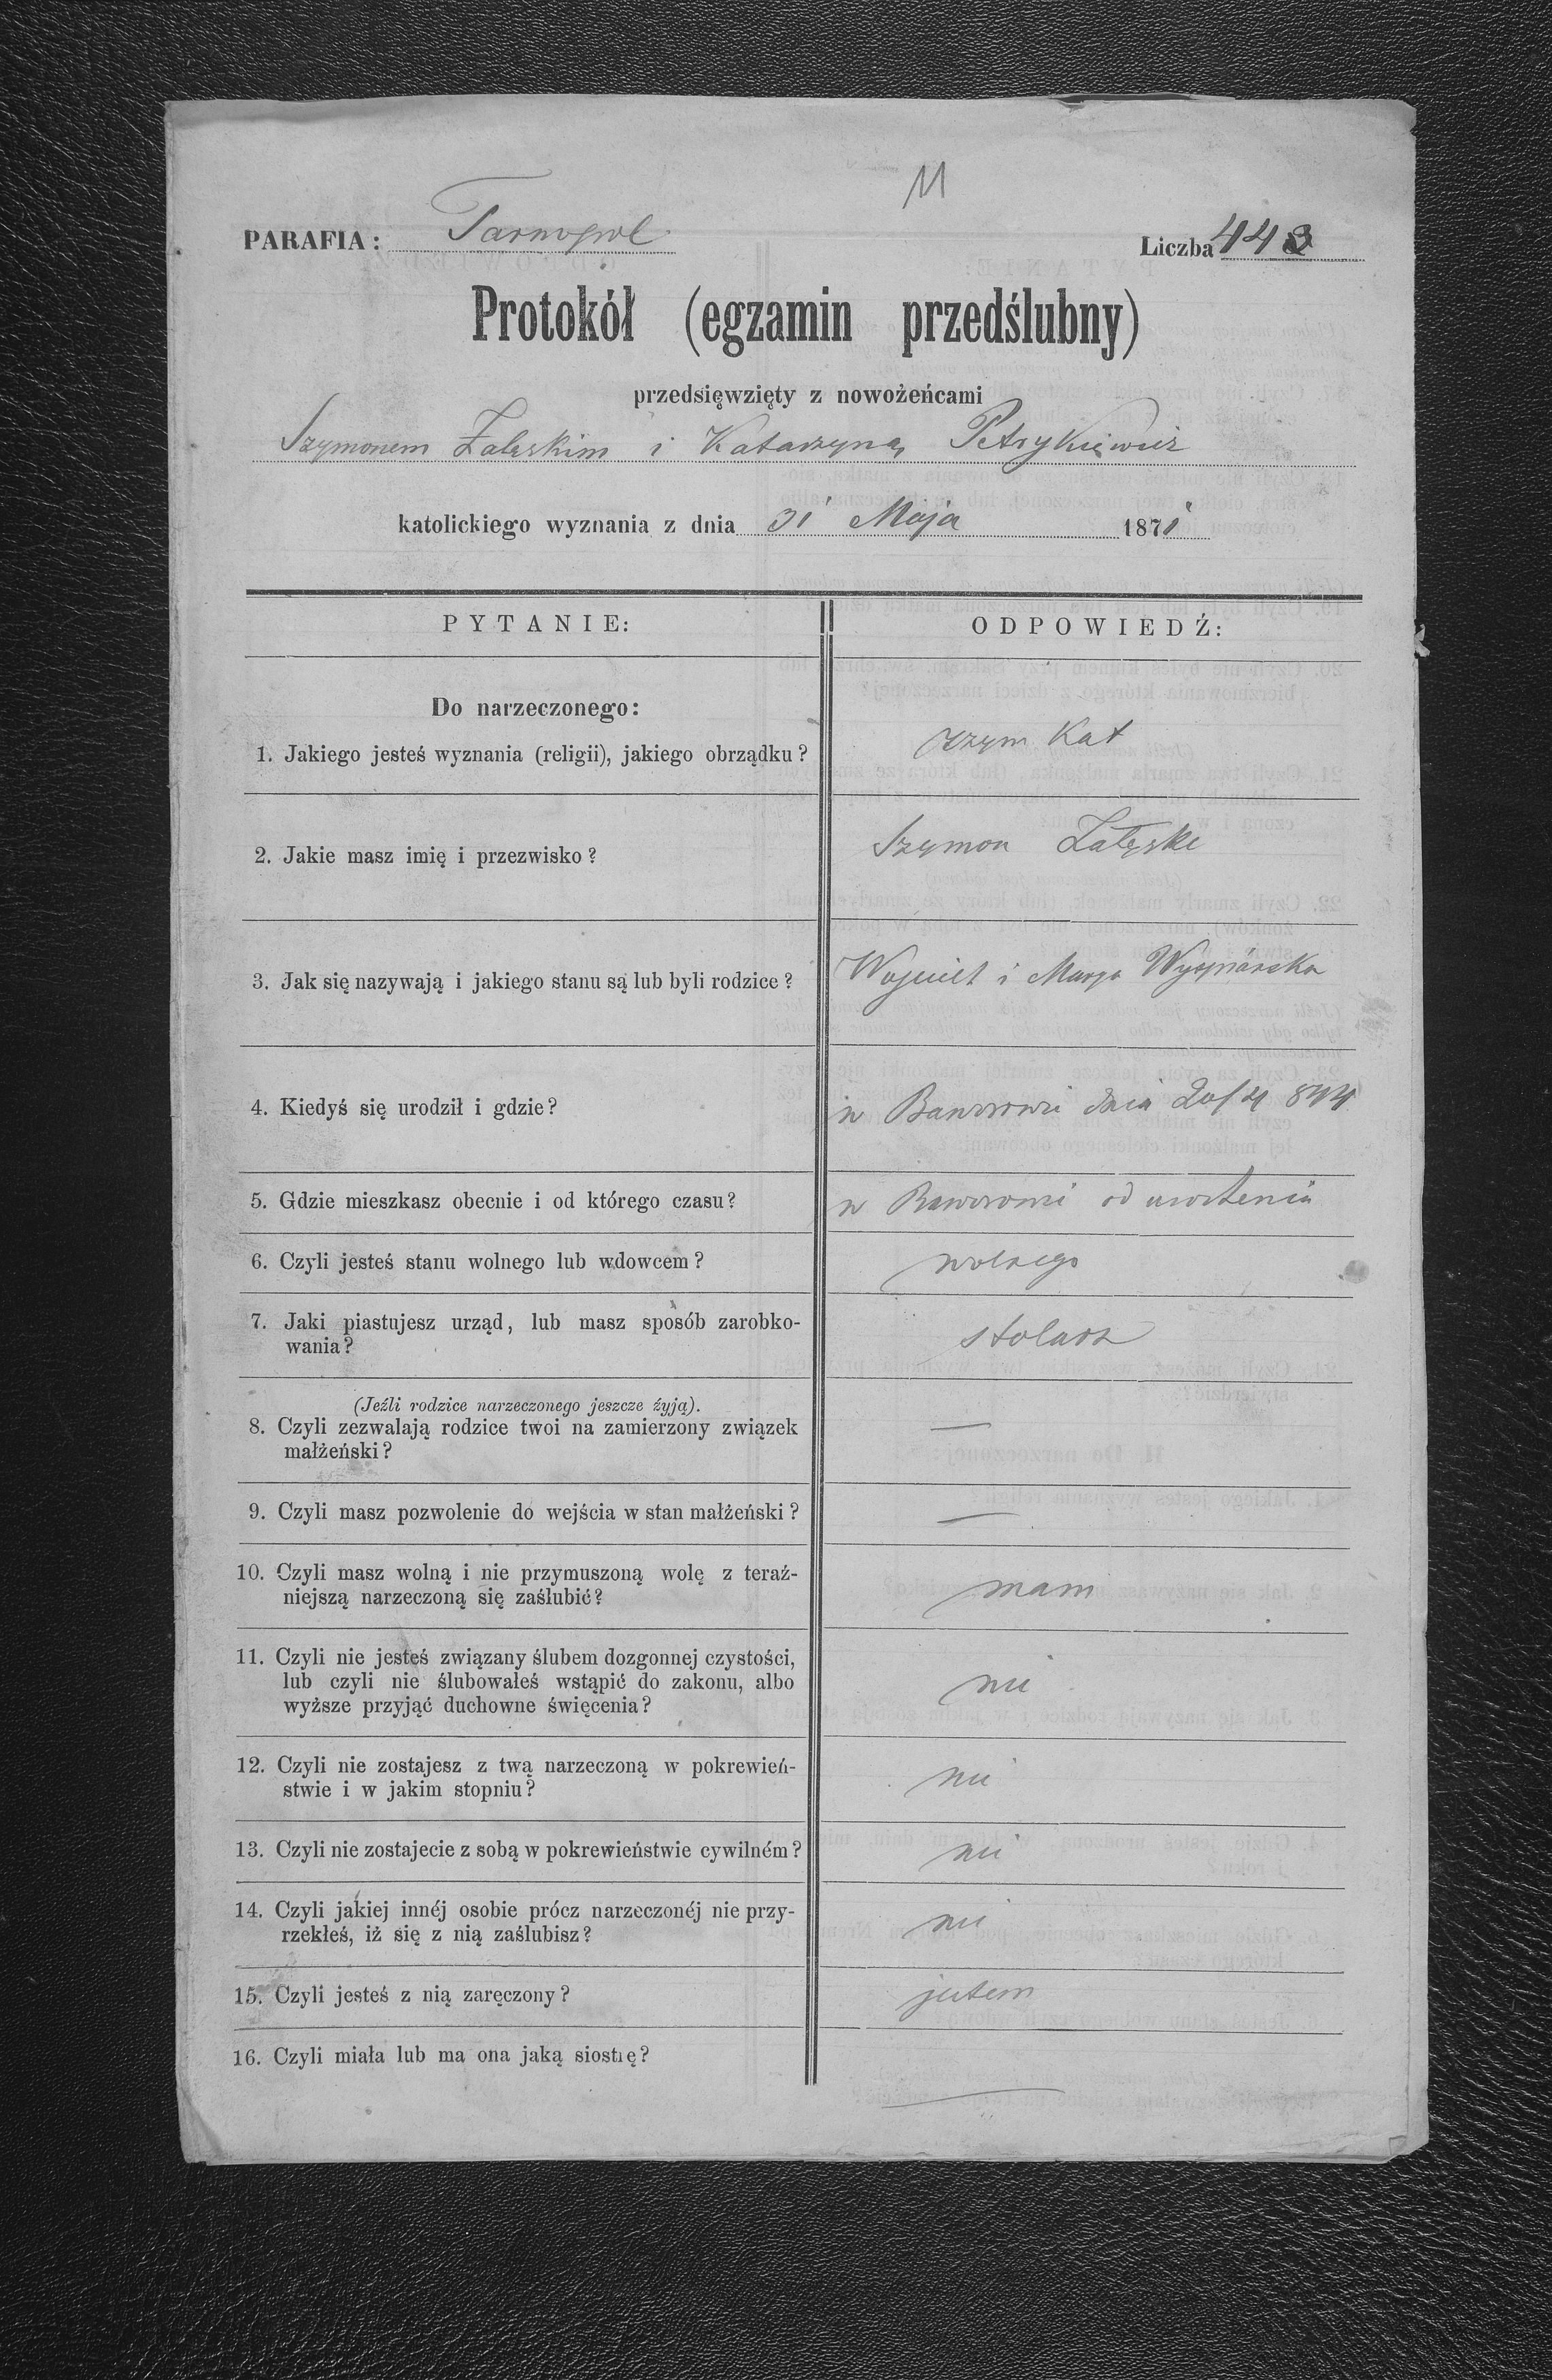 11
PARAFIA: Tarnopol
Liczba 443
Protokół (egzamin przedślubny)
przedsięwzięty z nowożeńcami
Szymonem Załęskim i Katarzyną Petrykiewicz
katolickiego wyznania z dnia 31 Maja 1871
PYTANIE:
ODPOWIEDŹ:
Do narzeczonego:
1. Jakiego jesteś wyznania (religii), jakiego obrządku?
rzym Kat
2. Jakie masz imię i przezwisko?
Szymon Załęski
3. Jak się nazywają i jakiego stanu są lub byli rodzice?
Wojciech i Marya
4. Kiedyś się urodził i gdzie?
w Baworowie dnia 20/4 844
5. Gdzie mieszkasz obecnie i od którego czasu?
w Baworowie od urodzenia
6. Czyli jesteś stanu wolnego lub wdowcem?
wolnego
7. Jaki piastujesz urząd, lub masz sposób zarobko-
wania?
stolarz
(Jeźli rodzice narzeczonego jeszcze żyją).
8. Czyli zezwalają rodzice twoi na zamierzony związek
małżeński?
—
9. Czyli masz pozwolenie do wejścia w stan małżeński?
—
10. Czyli masz wolną i nie przymuszoną wolę z teraź-
niejszą narzeczoną się zaślubić?
mam
11. Czyli nie jesteś związany ślubem dozgonnej czystości,
lub czyli nie ślubowałeś wstąpić do zakonu, albo
wyższe przyjąć duchowne święcenia?
nie
12. Czyli nie zostajesz z twą narzeczoną w pokrewień-
stwie i w jakim stopniu?
nie
13. Czyli nie zostajecie z sobą w pokrewieństwie cywilném?
nie
14. Czyli jakiej innéj osobie prócz narzeczonéj nie przy-
rzekłeś, iż się z nią zaślubisz?
nie
15. Czyli jesteś z nią zaręczony?
jestem
16. Czyli miała lub ma ona jaką siostrę?
—